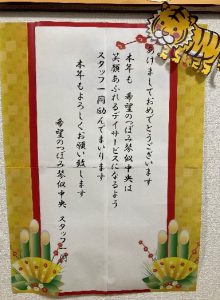 あけましておめでとうございます
本年も 希望のつぼみ琴似中央は
笑顔あふれるデイサービスになるよう
スタッフ一同励んでまいります
本年もよろしくお願い致します
希望のつぼみ琴似中央 スタッフ一同